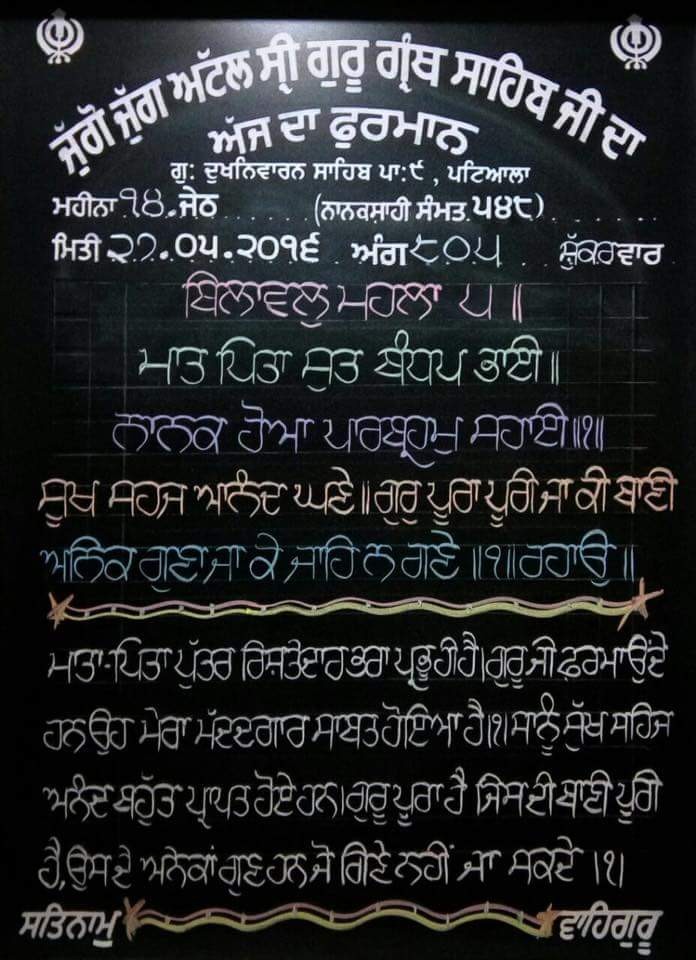 ਜੁੱਗੋ ਜੁੱਗ ਅਟੱਲ ਸ੍ਰੀ ਗੁਰੂ ਗ੍ਰੰਥ ਸਾਹਿਬ ਜੀ ਦਾ
ਅੱਜ ਦਾ ਫੁਰਮਾਨ
ਗੁ: ਦੁਖਨਿਵਾਰਨ ਸਾਹਿਬ ਪਾ:੯ , ਪਟਿਆਲਾ
ਮਹੀਨਾ ੧੪.ਜੇਠ ...... (ਨਾਨਕਸਾਹੀ ਸੰਮਤ ੫੪੮) ......
ਮਿਤੀ ੨੭.੦੫.੨੦੧੬ ਅੰਗ ੮੦੫ ... ਸ਼ੁੱਕਰਵਾਰ
ਬਿਲਾਵਲੁ ਮਹਲਾ ੫ ॥
ਮਾਤ ਪਿਤਾ ਸੁਤ ਬੰਧਪ ਭਾਈ॥
ਨਾਨਕ ਹੋਆ ਪਾਰਬ੍ਰਹਮੁ ਸਹਾਈ॥੧॥
ਸੂਖ ਸਹਜ ਆਨੰਦ ਘਣੇ॥ਗੁਰੁ ਪੂਰਾ ਪੂਰੀ ਜਾ ਕੀ ਬਾਣੀ
ਅਨਿਕ ਗੁਣਾ ਜਾ ਕੇ ਜਾਹਿ ਨ ਗਣੇ ॥੧॥ਰਹਾਉ॥
ਮਾਤਾ-ਪਿਤਾ ਪੁੱਤਰ ਰਿਸ਼ਤੇਦਾਰ ਭਰਾ ਪ੍ਰਭੂ ਹੀ ਹੈ।ਗੁਰੂ ਜੀ ਫ਼ਰਮਾਉਂਦੇ
ਹਨ ਉਹ ਮੇਰਾ ਮੱਦਦਗਾਰ ਸਾਬਤ ਹੋਇਆ ਹੈ।੧।ਸਾਨੂੰ ਸੁੱਖ ਸਹਿਜ
ਅਨੰਦ ਬਹੁੱਤ ਪ੍ਰਾਪਤ ਹੋਏ ਹਨ।ਗੁਰੂ ਪੂਰਾ ਹੈ ਜਿਸ ਦੀ ਬਾਣੀ ਪੂਰੀ
ਹੈ,ਉਸਦੇ ਅਨੇਕਾਂ ਗੁਣ ਹਨ ਜੋ ਗਿਣੇ ਨਹੀਂ ਜਾ ਸਕਦੇ ।੧।
ਸਤਿਨਾਮੁ ਵਾਹਿਗੁਰੂ